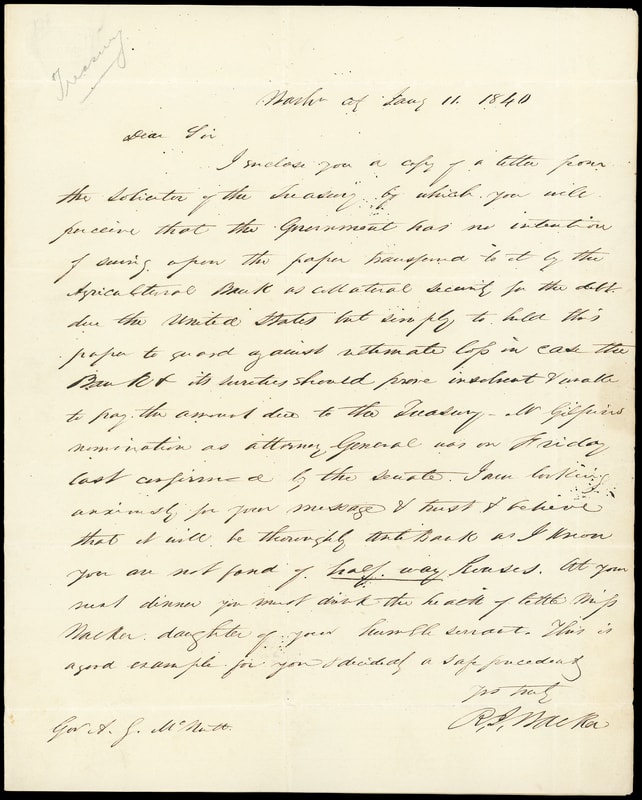 Treasury
Wash'n City Jany 11. 1840
Dear Sir
I enclose you a copy of a letter from
the Solicitor of the Treasury by which you will
perceive that the Government has no intention
of suing upon the paper transferred to it by the
Agricultural Bank as collateral security for the debt
due the United States but simply to hold this
paper to guard against ultimate loss in case the
Bank & its sureties should prove insolvent & unable
to pay the amount due to the Treasury - Mr Gilpins
nomination as attorney General was on Friday
last confirmed by the senate. I am looking
anxiously for your message & trust & believe
that it will be thoroughly anti Bank as I know
you are not fond of half way houses. At your
next dinner you must drink the health of little Miss
Walker daughter of your humble servant. This is
a good example for you & decidedly a safe precedent
yrs truly
R. J. Walker
Gov A. G. McNutt.